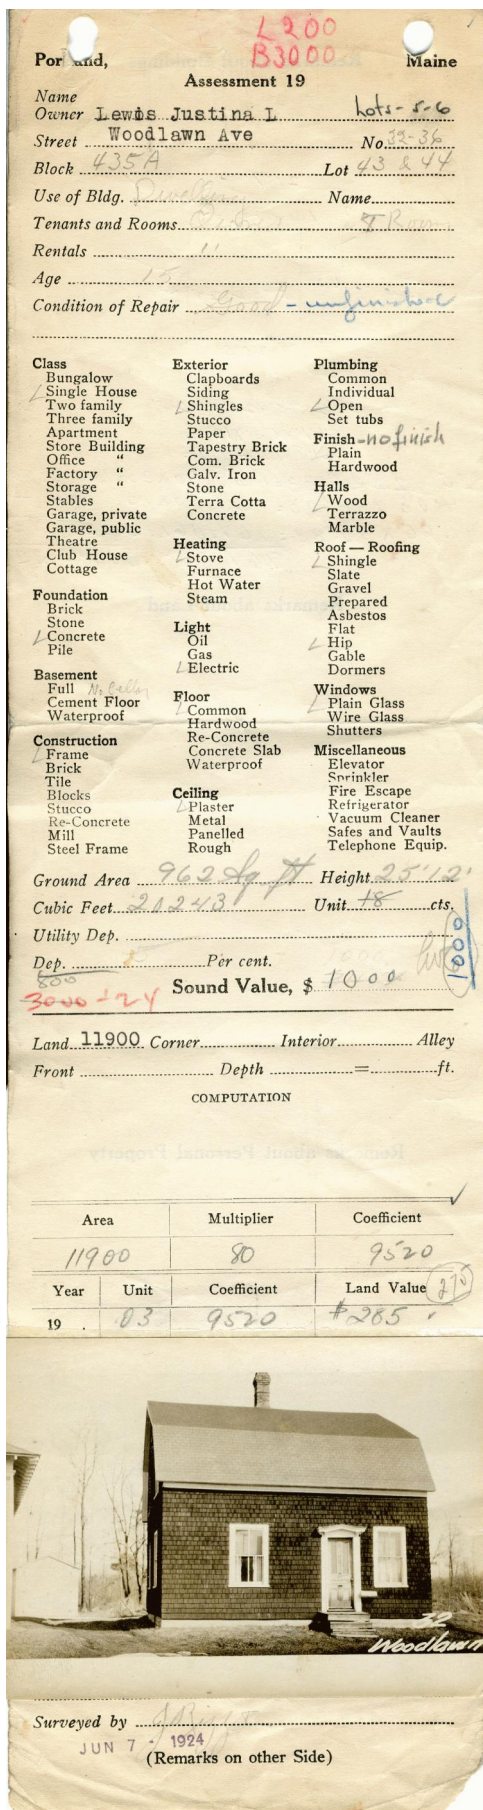 L200
B3000
Portland, Maine
Assessment 19
Name
Owner Lewis Justina L Lots - 5-6
Street Woodlawn Ave No. 32-36
Block 435A Lot 43 & 44
Use of Bldg. Dwelling Name
Tenants and Rooms 8 Room
Rentals "
Age 15
Condition of Repair Good - unfinished
Class
Bungalow
Single House
Two family
Three family
Apartment
Store Building
Office "
Factory "
Storage "
Stables
Garage, private
Garage, public
Theatre
Club House
Cottage
Foundation
Brick
Stone
Concrete
Pile
Basement
Full No Cellar
Cement Floor
Waterproof
Construction
Frame
Brick
Tile
Blocks
Stucco
Re-Concrete
Mill
Steel Frame
Exterior
Clapboards
Siding
Shingles
Stucco
Paper
Tapestry Brick
Com. Brick
Galv. Iron
Stone
Terra Cotta
Concrete
Heating
Stove
Furnace
Hot Water
Steam
Light
Oil
Gas
Electric
Floor
Common
Hardwood
Re-Concrete
Concrete Slab
Waterproof
Ceiling
Plaster
Metal
Panelled
Rough
Plumbing
Common
Individual
Open
Set tubs
Finish - no finish
Plain
Hardwood
Halls
Wood
Terrazzo
Marble
Roof — Roofing
Shingle
Slate
Gravel
Prepared
Asbestos
Flat
Hip
Gable
Dormers
Windows
Plain Glass
Wire Glass
Shutters
Miscellaneous
Elevator
Sprinkler
Fire Escape
Refrigerator
Vacuum Cleaner
Safes and Vaults
Telephone Equip.
Ground Area 962 Sq ft Height 25'12'
Cubic Feet 20243 Unit 18 cts.
Utility Dep.
Dep. Per cent. 1000
800
3000 - 24 Sound Value, $ 1000
Land 11900 Corner Interior Alley
Front Depth = ft.
COMPUTATION
Area Multiplier Coefficient
11900 80 9520
Year Unit Coefficient Land Value 270
19 . 03 9520 $285
32
Woodlawn
Surveyed by
JUN 7 - 1924
(Remarks on other Side)